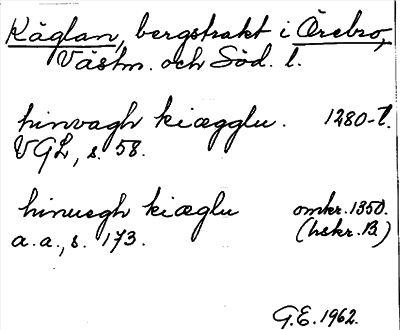 Käglan, bergstrakt i Örebro,
Västm. och Söd. l.
hinvagh kiægglu. 1280-t.
VGL, s. 58.
hinuegh kiæglu omkr. 1350.
a.a., s. 173. (hskr. B.)
G.E. 1962.